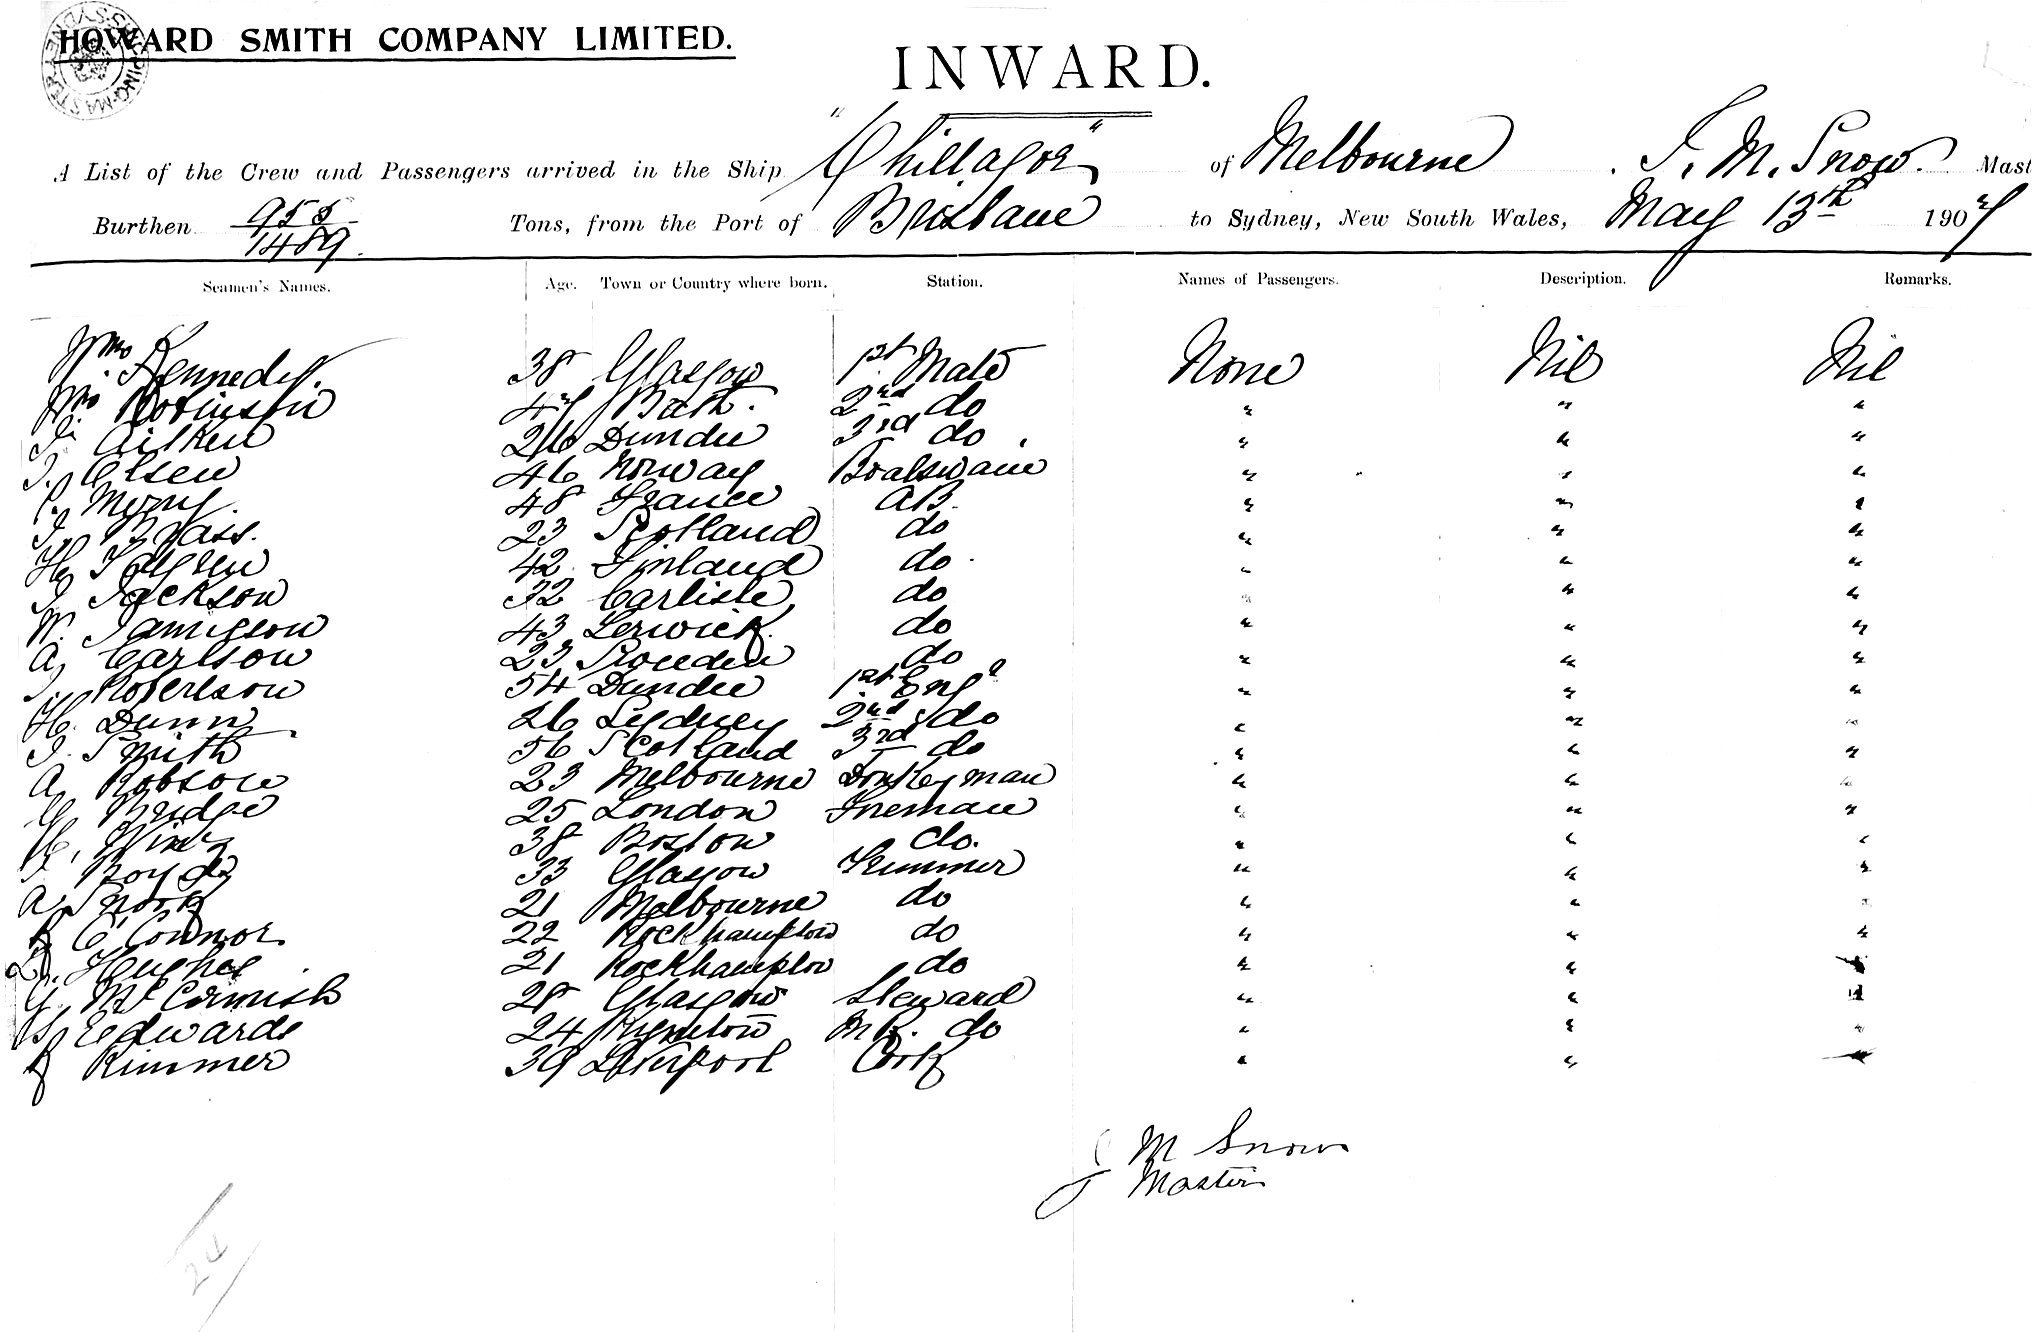 HOWARD SMITH COMPANY LIMITED.
INWARD.
A List of the Crew and Passengers arrived in the Ship "Chillagoe" of Melbourne J. M. Snow. Mast
Burthen 955/1489. Tons, from the Port of Brisbane to Sydney, New South Wales, May 13th 1907
Seamen's Names. Age. Town or Country where born. Station. Names of Passengers. Description. Remarks.
Wm Kennedy. 38 Glasgow 1st Mate None Nil Nil
Wm Robinson 47 Bath. 2nd do " " "
Aitken 26 Dundee 3rd do " " "
Olsen 46 Norway Boatswain " " "
48 France AB. " " "
J. Brass. 23 Scotland do " " "
H. 42 Finland do " " "
J. Jackson 32 Carlisle do " " "
W. Jamieson 43 Lerwick do " " "
A. Carlson 23 Sweden do " " "
Robertson 54 Dundee 1st Engr " " "
H. Dunn 26 Sydney 2nd do " " "
J. Smith 56 Scotland 3rd do " " "
A. Robson 23 Melbourne Donkeyman " " "
Bridge 25 London Fireman " " "
H. 38 Boston do. " " "
Boyd 33 Glasgow Trimmer " " "
A. 21 Melbourne do " " "
O'Connor 22 Rockhampton do " " "
D. Hughes 21 Rockhampton do " " "
G. McCormish 28 Glasgow Steward " " "
Edwards 24 Kyneton do " " "
Rimmer 39 Liverpool Cook " " "
J M Snow
Master
24